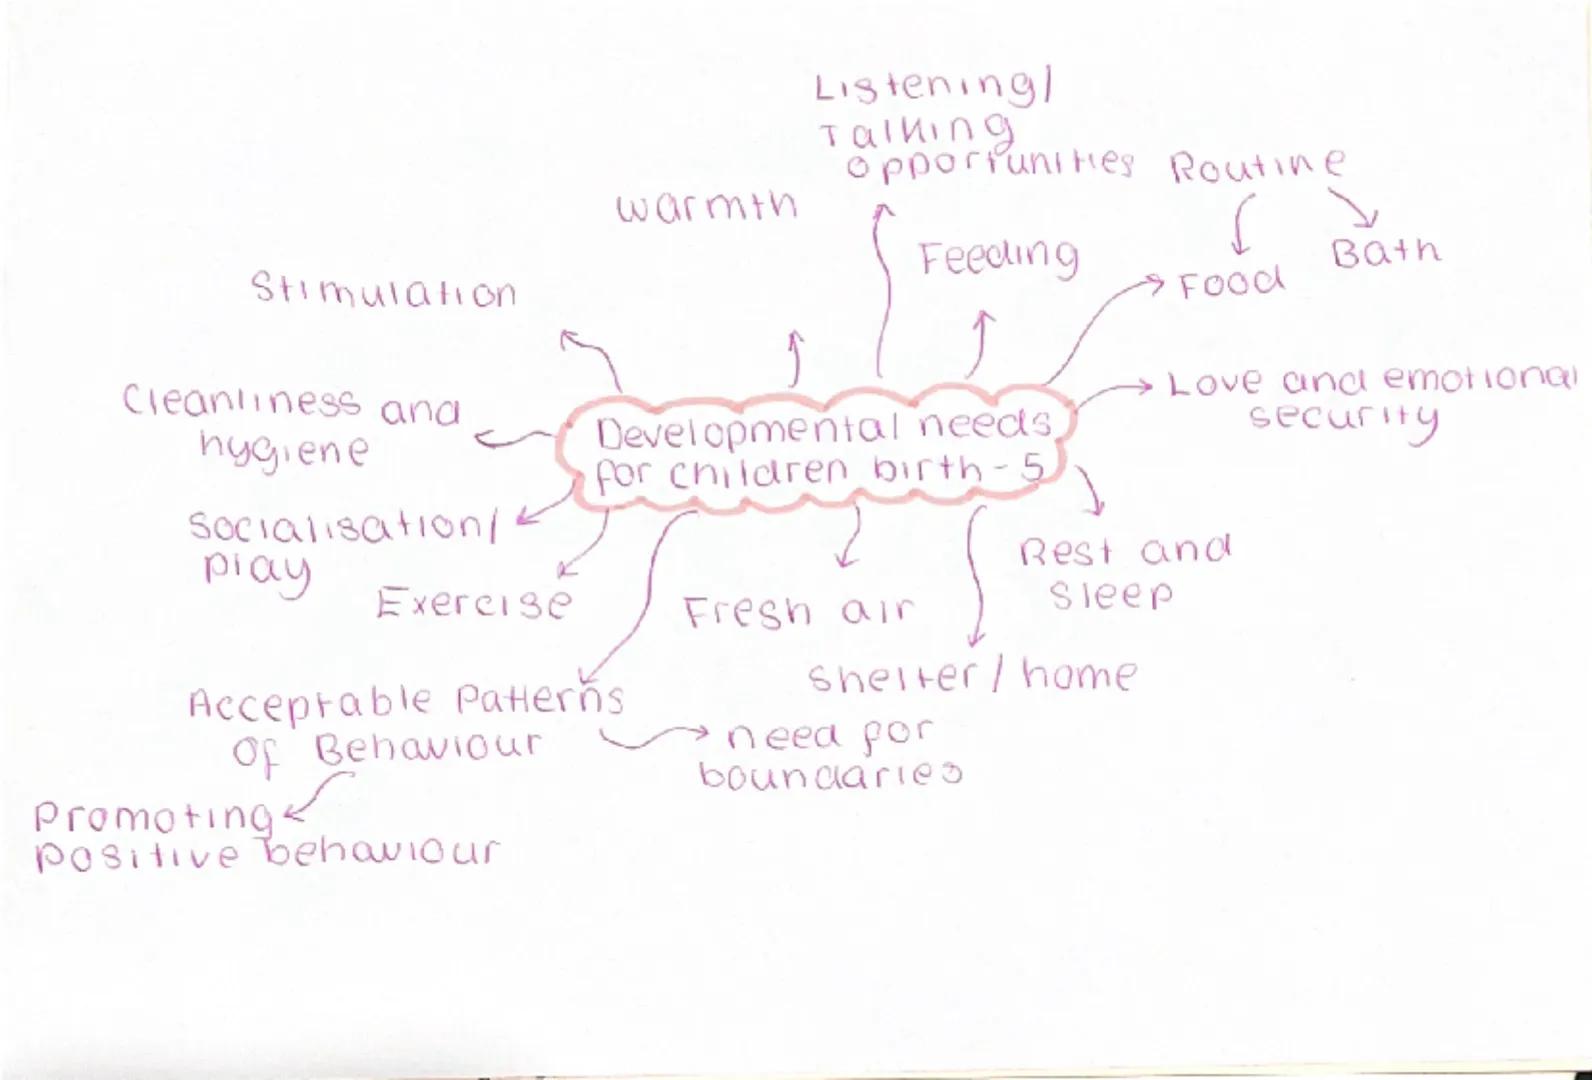 Listening/
Talking
opportunities
Routine
warmth
Feeding
Food
Bath
Stimulation
Love and emotional
security
Cleanliness and
hygiene
Developmental needs
for children birth - 5
Socialisation/
play
Exercise
Fresh air
Rest and
sleep
Shelter / home
Acceptable Patterns
Of Behaviour
need for
boundaries
Promoting
positive behaviour